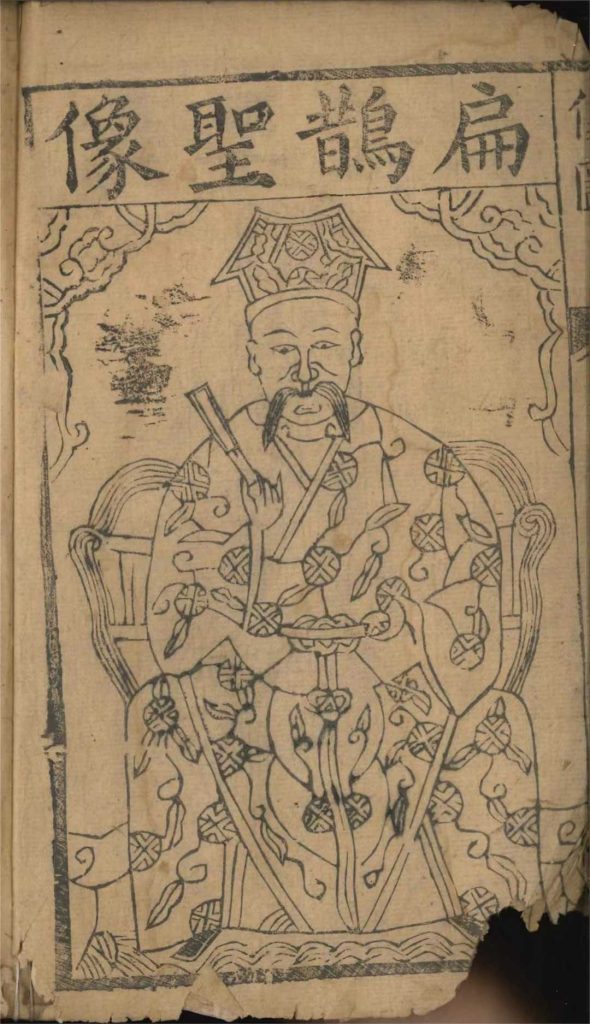 扁鵲聖像